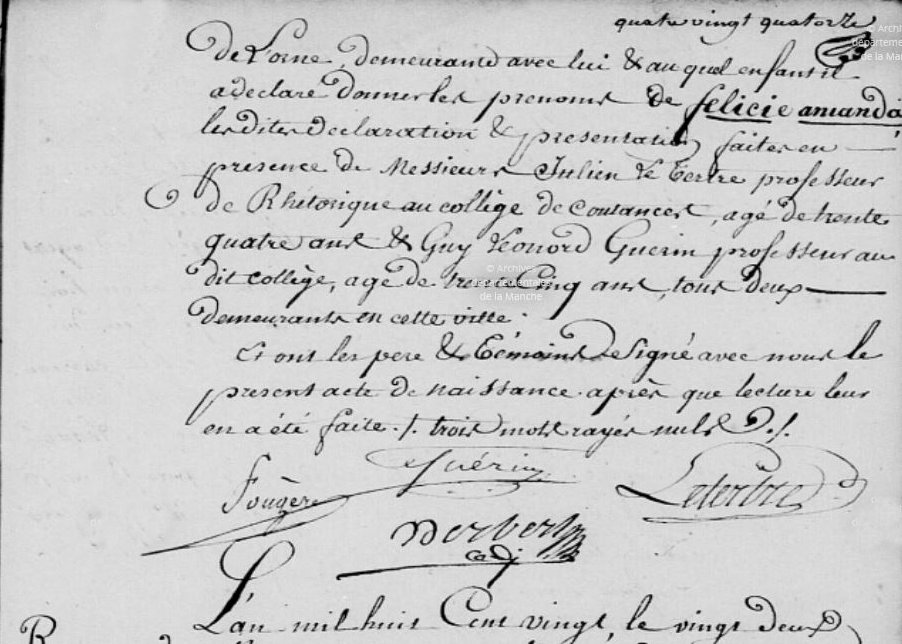 quatre vingt quatorze
de l'orne, demeurand avec lui & auquel enfant il
a declaré donner les prenoms de felicie amanda
lesdites declaration & presentation faites en
presence de Messieurs Julien Le Tertre professeur
de Rhétorique au collège de Coutances, agé de trente
quatre ans & Guy Léonord Guerin professeur au
dit collège, agé de trente cinq ans, tous deux
demeurants en cette ville.
Et ont les pere & témoins signé avec nous le
present acte de naissance après que lecture leur
en a été faite ./. trois mots rayés nuls ./.
Guérin
Fougère
Letertre
adj
L'an mil huit Cent vingt, le vingt deux
© Archives
départementales
de la Manche
© Archi
départeme
de la Man